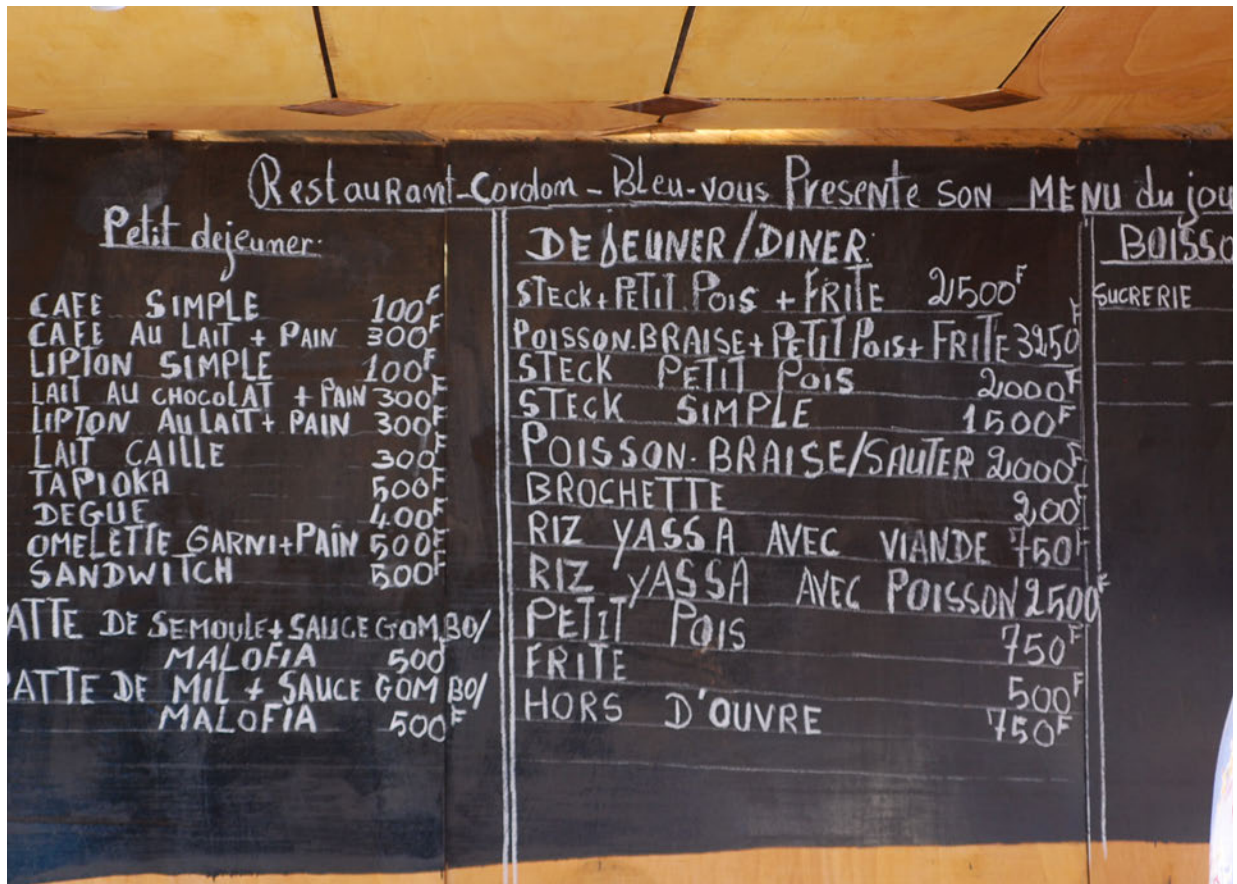 Restaurant-Cordon-Bleu-vous Presente SON MENU du jou
Petit dejeuner.
CAFE SIMPLE 100F
CAFE AU LAIT + PAIN 300F
LIPTON SIMPLE 100F
LAIT AU CHOCOLAT + PAIN 300F
LIPTON AU LAIT + PAIN 300F
LAIT CAILLE 300F
TAPIOKA 500F
DEGUE 400F
OMELETTE GARNI+PAIN 500F
SANDWITCH 500F
PATTE DE SEMOULE+SAUCE GOMBO/
MALOFIA 500F
PATTE DE MIL + SAUCE GOMBO/
MALOFIA 500F
DEJEUNER/DINER:
STECK+PETIT POIS + FRITE 2500F
POISSON.BRAISE+PETIT POIS+FRITE 3250F
STECK PETIT POIS 2000F
STECK SIMPLE 1500F
POISSON.BRAISE/SAUTER 2000F
BROCHETTE 200F
RIZ YASSA AVEC VIANDE 750F
RIZ YASSA AVEC POISSON 2500F
PETIT POIS 750F
FRITE 500F
HORS D'OUVRE 750F
BOISSO
SUCRERIE